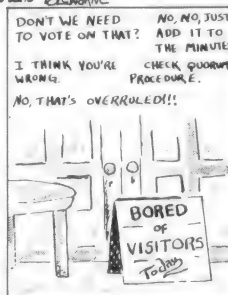 DON'T WE NEED
TO VOTE ON THAT?
NO, NO, JUST
ADD IT TO
THE MINUTE
I THINK YOU'RE
WRONG.
CHECK QUORUM
PROCEDURE.
NO, THAT'S OVERRULED!!!
BORED
OF
VISITORS
Today